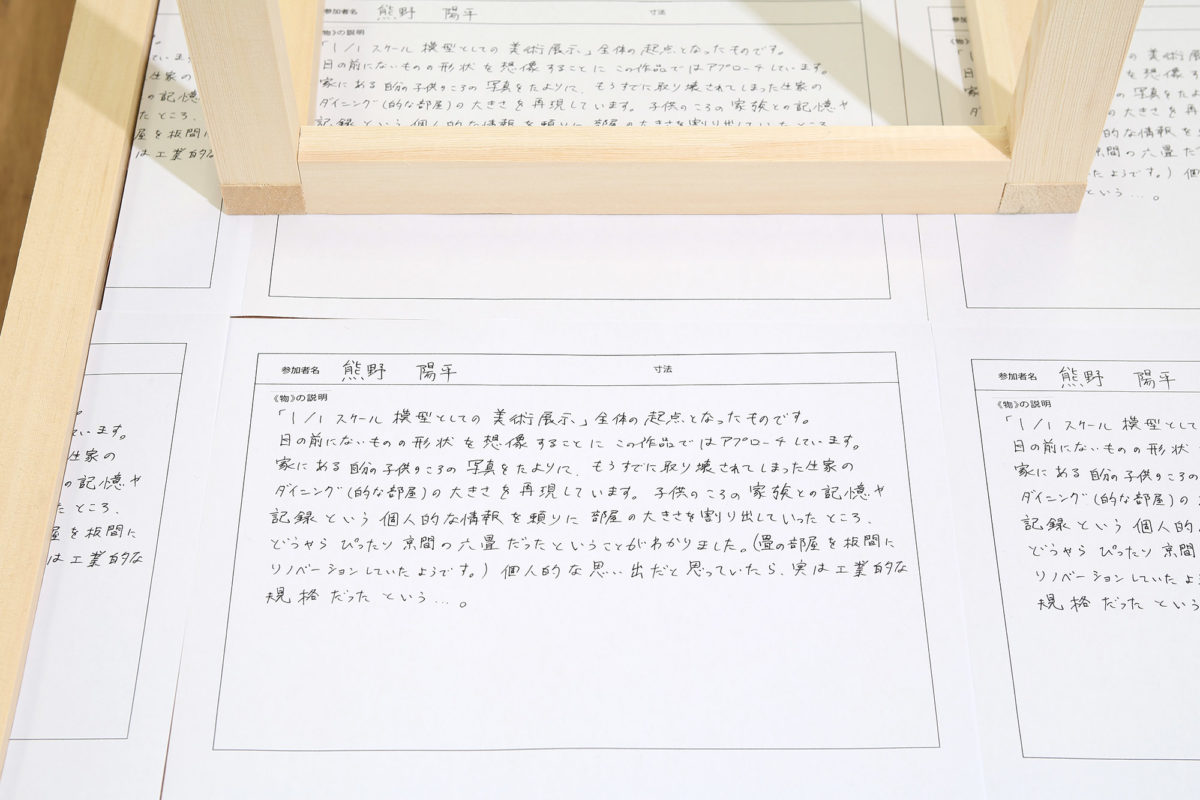 ています。
生家の
の記憶や
たところ、
屋を板間に
は工業的な
参加者名 熊野 陽平 寸法
物》の説明
「1/1 スケール 模型としての 美術展示」全体の起点となったものです。
目の前にないものの形状を想像することに この作品ではアプローチしています。
家にある自分の子供のころの写真をたよりに、もうすでに取り壊されてしまった生家の
ダイニング(的な部屋)の大きさを再現しています。子供のころの家族との記憶や
記録という個人的な情報を頼りに 部屋の大きさを割り出していったところ、
参加
《物》
の美術展
想像す
の写真をたよ
の大きさを再
的な情報を
京間の六畳だっ
たようです。)個
という…。
ています。
生家の
の記憶や
たところ、
屋を板間に
は工業的な
参加者名 熊野 陽平 寸法
《物》の説明
「1/1 スケール 模型としての 美術展示」全体の起点となったものです。
目の前にないものの形状を想像することに この作品ではアプローチしています。
家にある自分の子供のころの写真をたよりに、もうすでに取り壊されてしまった生家の
ダイニング(的な部屋)の大きさを再現しています。子供のころの家族との記憶や
記録という個人的な情報を頼りに 部屋の大きさを割り出していったところ、
どうやらぴったり京間の六畳だったということがわかりました。(畳の部屋を板間に
リノベーションしていたようです。)個人的な思い出だと思っていたら、実は工業的な
規格だったという…。
参加者名 熊野 陽平
《物》の説明
「1/1 スケール 模型として
目の前にないものの形状
家にある自分の子供のころの
ダイニング(的な部屋)の
記録という個人的
どうやらぴったり京間
リノベーションしていたよう
規格だったという